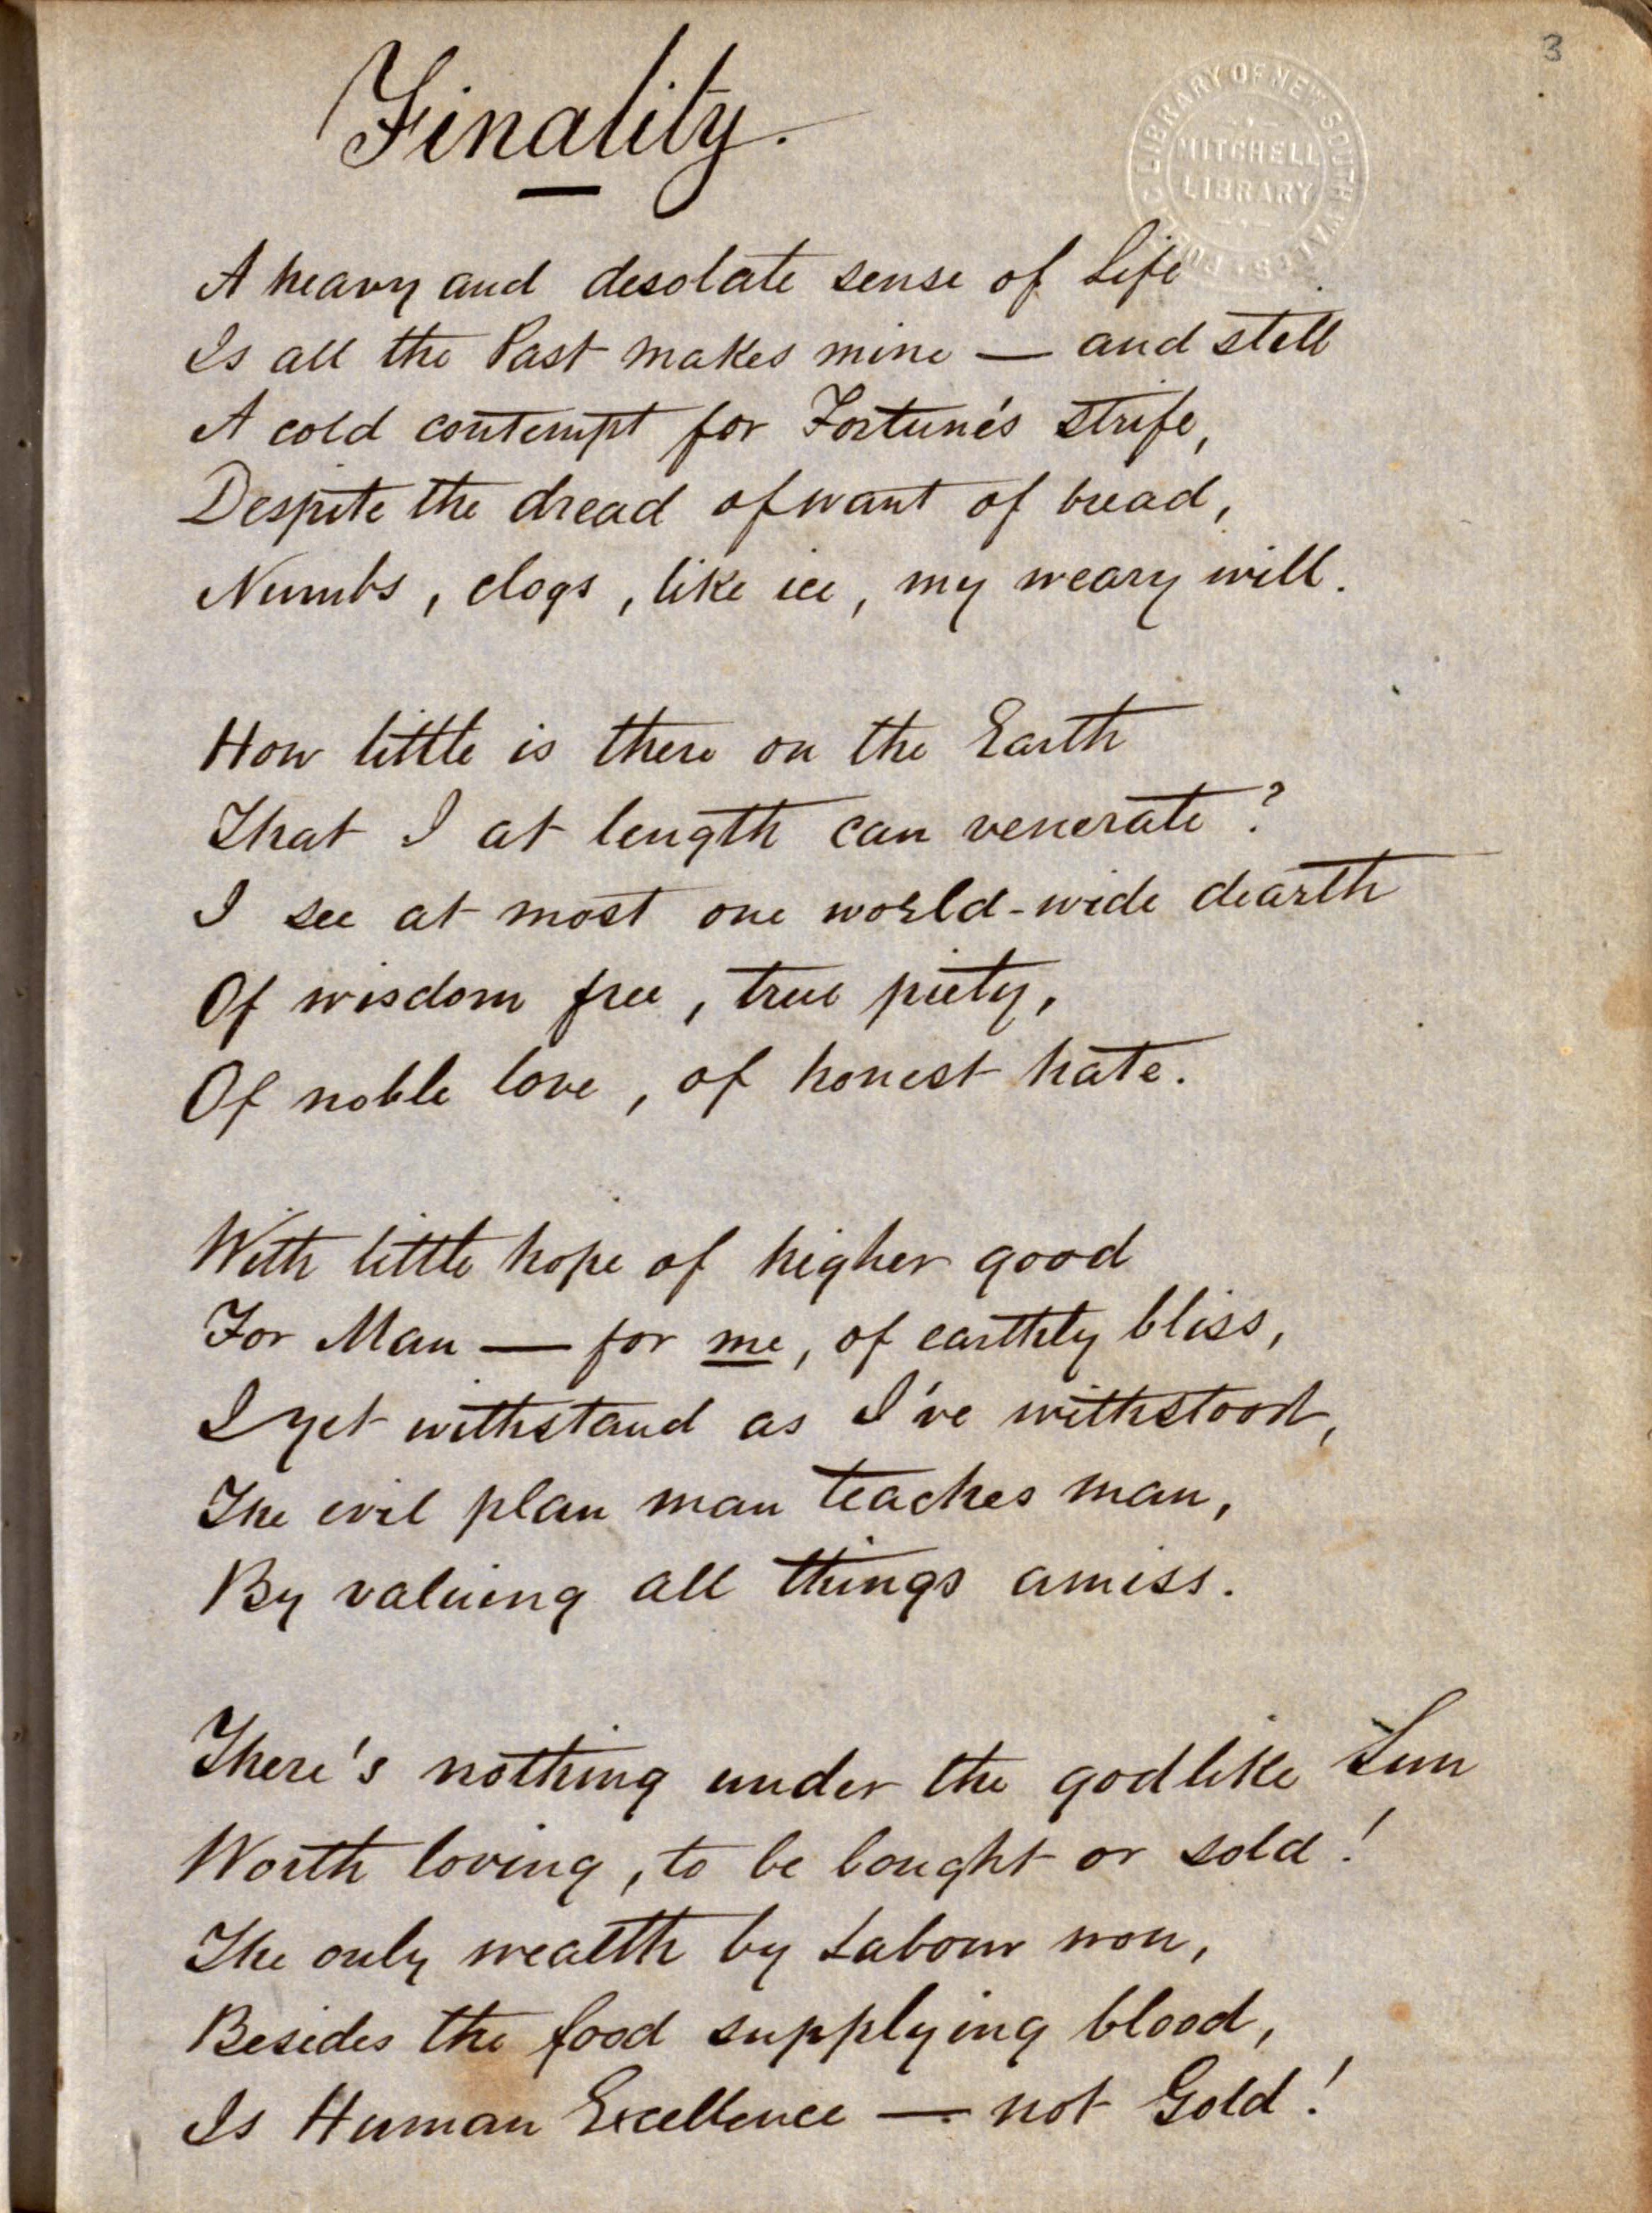 3
Finality.
PUBLIC LIBRARY OF NEW SOUTH WALES
MITCHELL
LIBRARY
A heavy and desolate sense of Life
Is all the Past makes mine — and still
A cold contempt for Fortune's strife,
Despite the dread of want of bread,
Numbs, clogs, like ice, my weary will.
How little is there on the Earth
That I at length can venerate?
I see at most one world-wide dearth
Of wisdom free, true piety,
Of noble love, of honest hate.
With little hope of higher good
For Man — for me, of earthly bliss,
I yet withstand as I've withstood,
The evil plan man teaches man,
By valuing all things amiss.
There's nothing under the godlike Sun
Worth loving, to be bought or sold!
The only wealth by Labour won,
Besides the food supplying blood,
Is Human Excellence — not Gold!